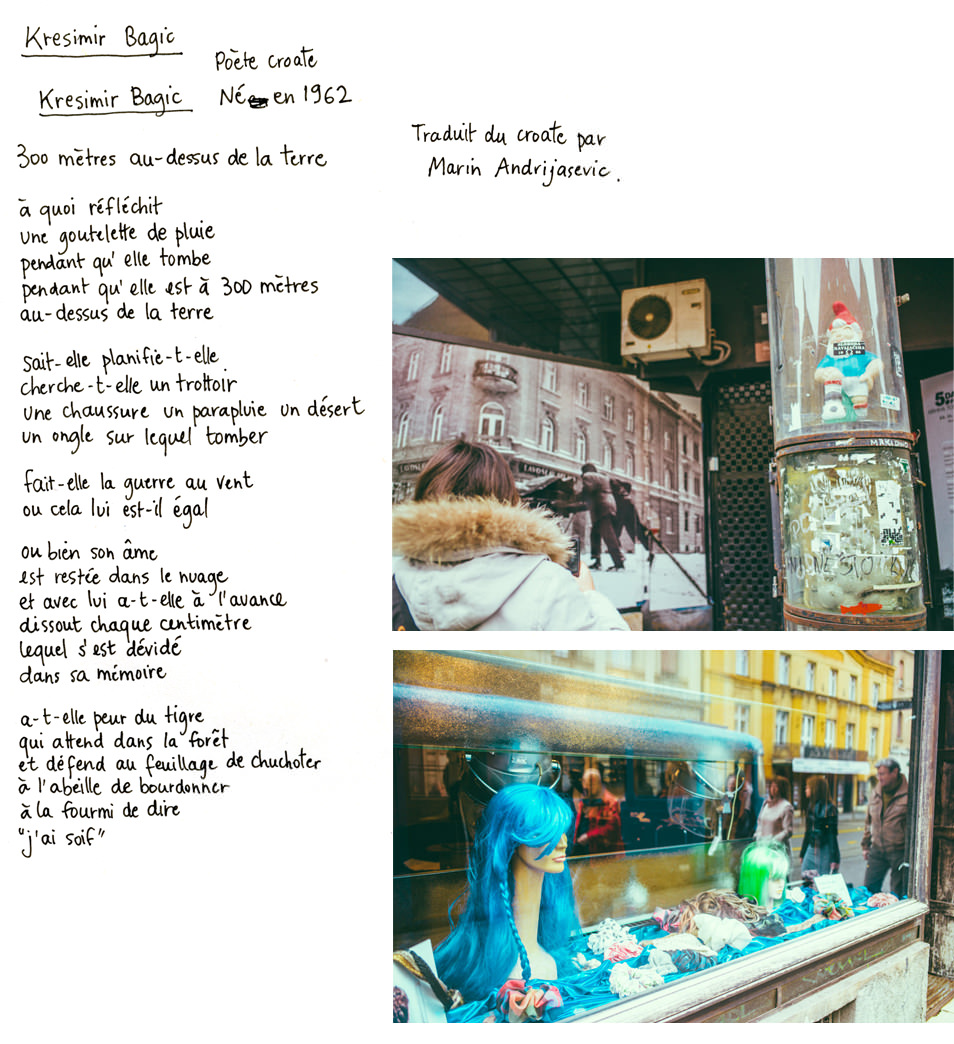 Kresimir Bagic
Poète croate
Kresimir Bagic
Né en 1962
Traduit du croate par
Marin Andrijasevic.
300 mètres au-dessus de la terre
à quoi réfléchit
une gouttelette de pluie
pendant qu'elle tombe
pendant qu'elle est à 300 mètres
au-dessus de la terre
sait-elle planifie-t-elle
cherche-t-elle un trottoir
une chaussure un parapluie un désert
un ongle sur lequel tomber
fait-elle la guerre au vent
ou cela lui est-il égal
ou bien son âme
est restée dans le nuage
et avec lui a-t-elle à l'avance
dissout chaque centimètre
lequel s'est dévidé
dans sa mémoire
a-t-elle peur du tigre
qui attend dans la forêt
et défend au feuillage de chuchoter
à l'abeille de bourdonner
à la fourmi de dire
"j'ai soif"